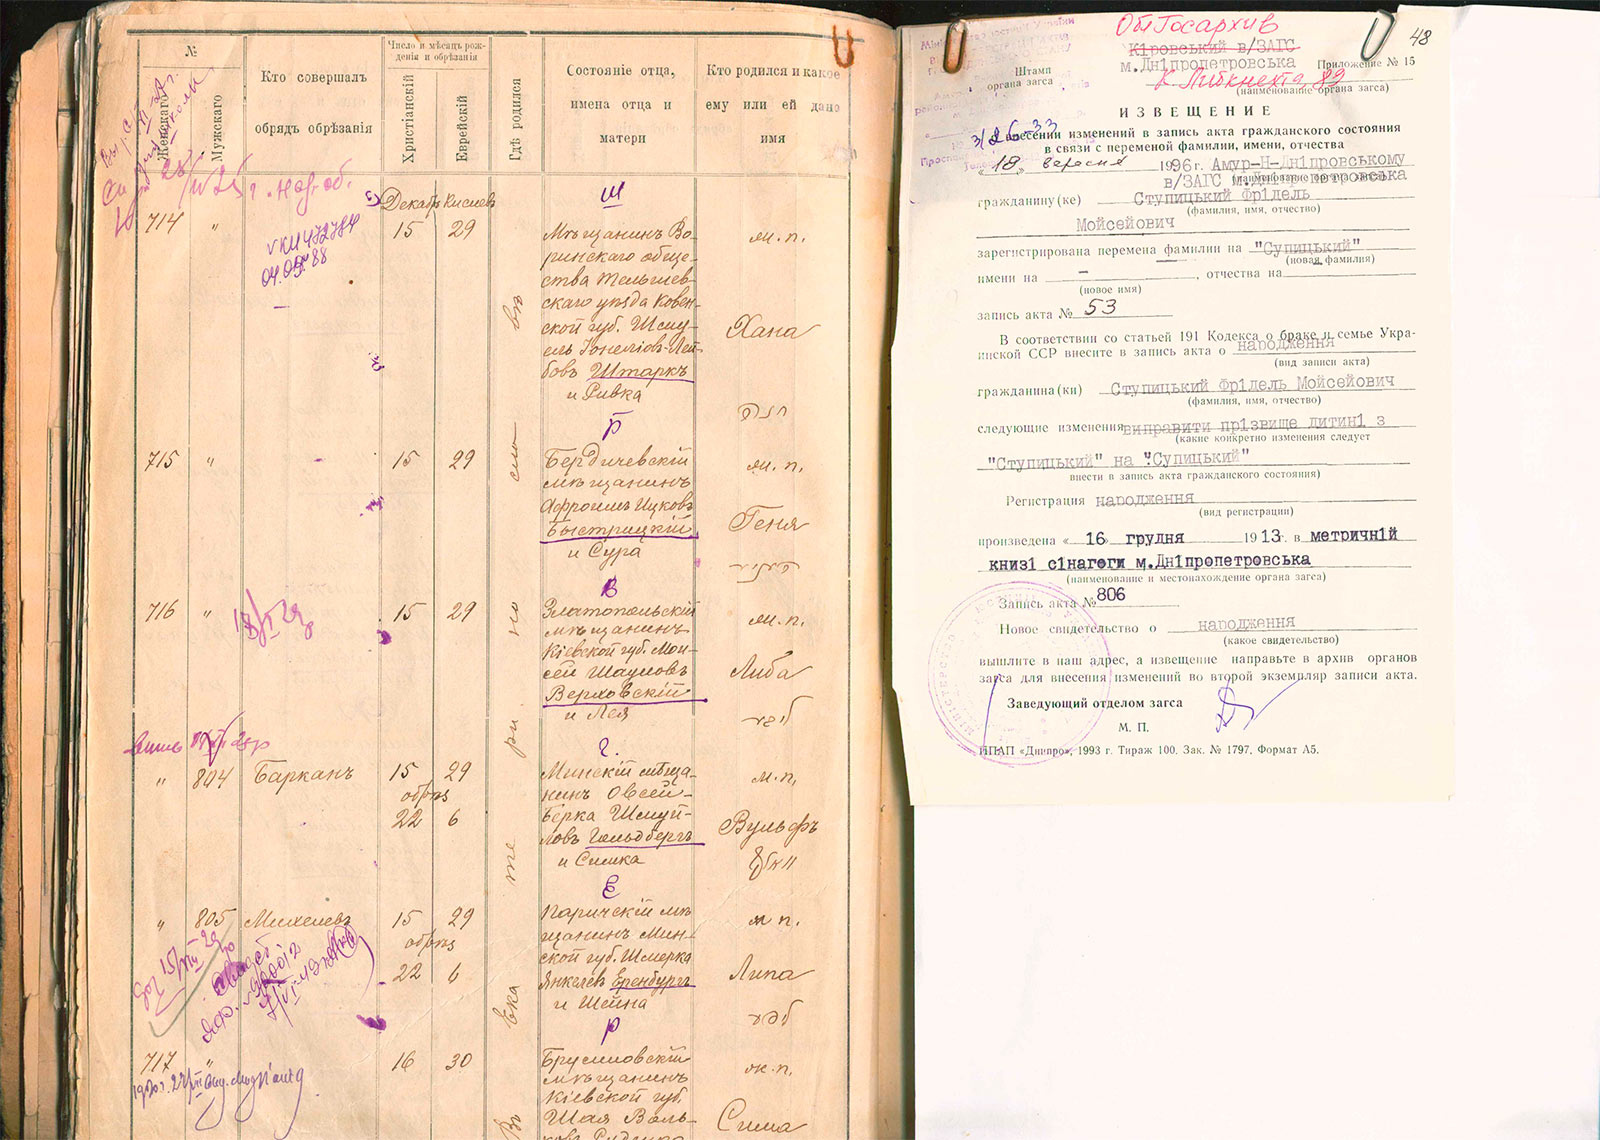 №
Женскаго
Мужскаго
Кто совершалъ
обрядъ обрѣзанія
Число и мѣсяцъ рож-
денія и обрѣзанія
Христіанскій
Еврейскій
Гдѣ родился
Состояніе отца,
имена отца и
матери
Кто родился и какое
ему или ей дано
имя
г. нар. об.
Декабрь Кислевъ
714 " 15 29
VКИ 472784
04.05.88
Ш
Мѣщанинъ Во-
ринскаго обще-
ства Тельшев-
скаго уѣзда Ковен-
ской губ. Шму-
ель Іонеліовъ-Лей-
бовъ Штаркъ
и Ривка
ж. п.
Хана
חנה
Р
715 " 15 29
Бердичевскій
мѣщанинъ
Афроимъ Ицковъ
Быстрицкій
и Сура
ж. п.
Геня
В
716 " 15 29
Златопольскій
мѣщанинъ
Кіевской губ. Мои-
сей Шаумовъ
Верховскій
и Лея
ж. п.
Либа
ליבע
Г.
" 804 Барканъ 15 29
обрѣз
22 6
Минскій мѣща-
нинъ Овсей-
Берка Шмуй-
ловъ Гольдбергъ
и Симка
м. п.
Вульфъ
Е
" 805 Михелевъ 15 29
обрѣз
22 6
Паричскій мѣ-
щанинъ Мин-
ской губ. Шмерка
Янкелевъ Еренбургъ
и Шейна
м п.
Липа
Р
717 " 16 30
Брусиловскій
мѣщанинъ
Кіевской губ.
Шая Воль-
ж. п.
Сима
въ Екатеринославѣ
48
Облгосархив
Кіровський в/ЗАГС
м.Дніпропетровська
К. Либкнехта, 89
Приложение № 15
Штамп
органа загса
(наименование органа загса)
ИЗВЕЩЕНИЕ
3/26-33
о внесении изменений в запись акта гражданского состояния
в связи с переменой фамилии, имени, отчества
„18„ вересня 1996 г. Амур-Н-Дніпровському
в/ЗАГС м.Дніпропетровська
(наименование органа загса)
гражданину(ке) Ступицький Фрідель
(фамилия, имя, отчество)
Мойсейович
зарегистрирована перемена фамилии на "Супицький"
(новая фамилия)
имени на –, отчества на –
(новое имя)
запись акта № 53
В соответствии со статьей 191 Кодекса о браке и семье Укра-
инской ССР внесите в запись акта о народження
(вид записи акта)
гражданина(ки) Ступицький Фрідель Мойсейович
(фамилия, имя, отчество)
следующие изменения виправити прізвище дитині з
(какие конкретно изменения следует
"Ступицький" на "Супицький"
внести в запись акта гражданского состояния)
Регистрация народження
(вид регистрации)
произведена « 16 » грудня 1913 г. в метричній
книзі сінагоги м.Дніпропетровська
(наименование и местонахождение органа загса)
Запись акта № 806
Новое свидетельство о народження
(какое свидетельство)
вышлите в наш адрес, а извещение направьте в архив органов
загса для внесения изменений во второй экземпляр записи акта.
Заведующий отделом загса
М. П.
ППАП «Днипро», 1993 г. Тираж 100. Зак. № 1797, Формат А5.